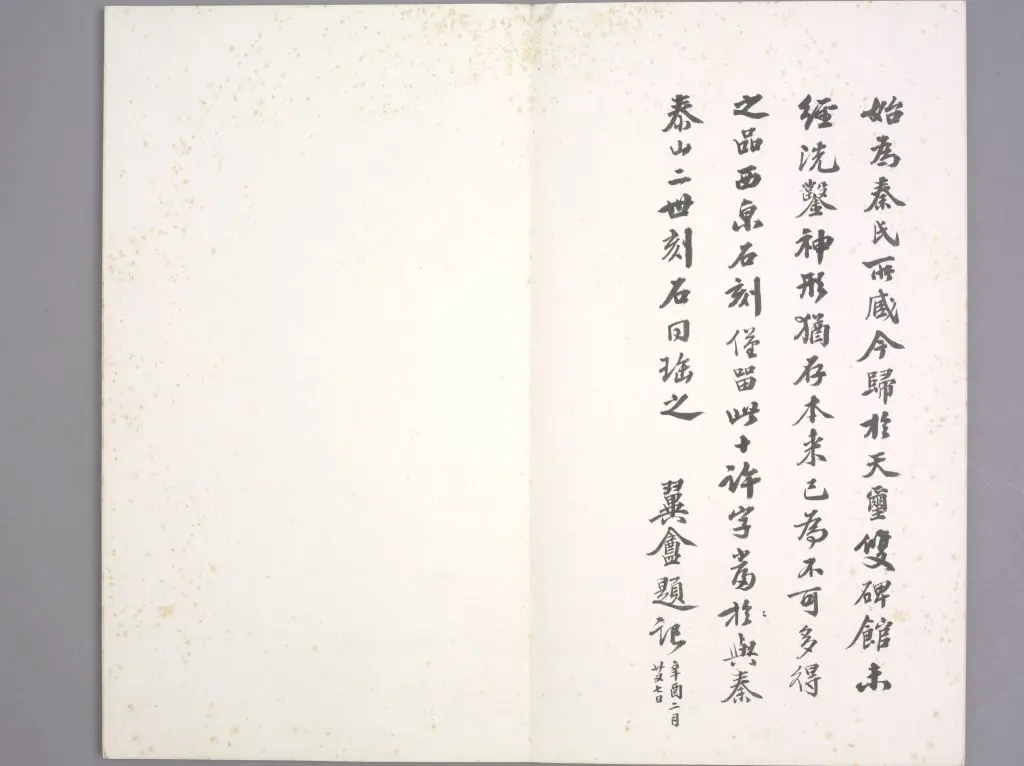 始為秦氏所臧今歸於天璽雙碑館未
經洗鑿神形猶存本来已為不可多得
之品西泉石刻僅留此十許字當於與秦
泰山二世刻石同珤之 翼盦題記
辛酉二月
廿又七日